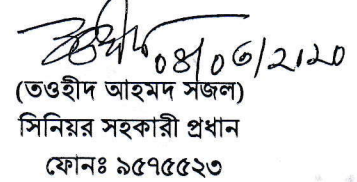 ০৪/০৩/২০২০
(তওহীদ আহমদ সজল)
সিনিয়র সহকারী প্রধান
ফোনঃ ৯৫৭৫৫২৩